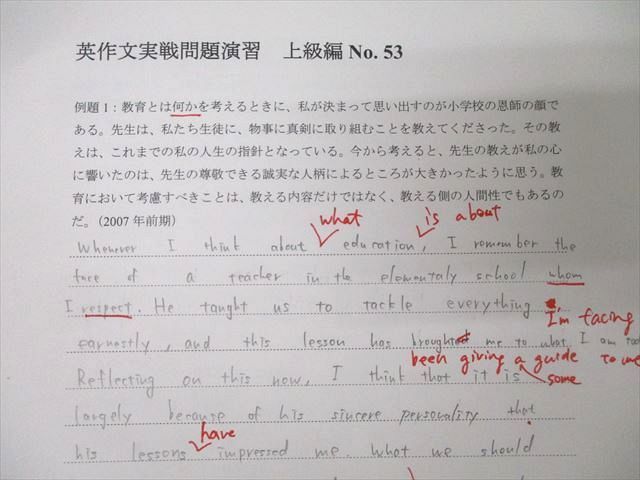 英作文実戦問題演習 上級編 No. 53
例題1：教育とは何かを考えるときに、私が決まって思い出すのが小学校の恩師の顔で
ある。先生は、私たち生徒に、物事に真剣に取り組むことを教えてくださった。その教
えは、これまでの私の人生の指針となっている。今から考えると、先生の教えが私の心
に響いたのは、先生の尊敬できる誠実な人柄によるところが大きかったように思う。教
育において考慮すべきことは、教える内容だけではなく、教える側の人間性でもあるの
だ。（2007 年前期）
what
is about
Whenever I think about education, I remember the
face of a teacher in the elementaly school whom
I respect. He taught us to tackle everything
I'm facing
earnestly, and this lesson has brought me to what I am
been giving a guide to me
some
Reflecting on this now, I think that it is
largely because of his sincere personality that
have
his lessons impressed me. What we should